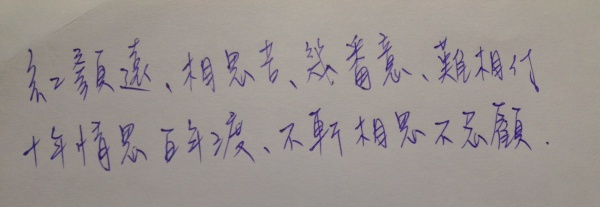 紅顏遠、相思苦、幾番意、難相付
十年情思百年渡、不斬相思不忍顧.